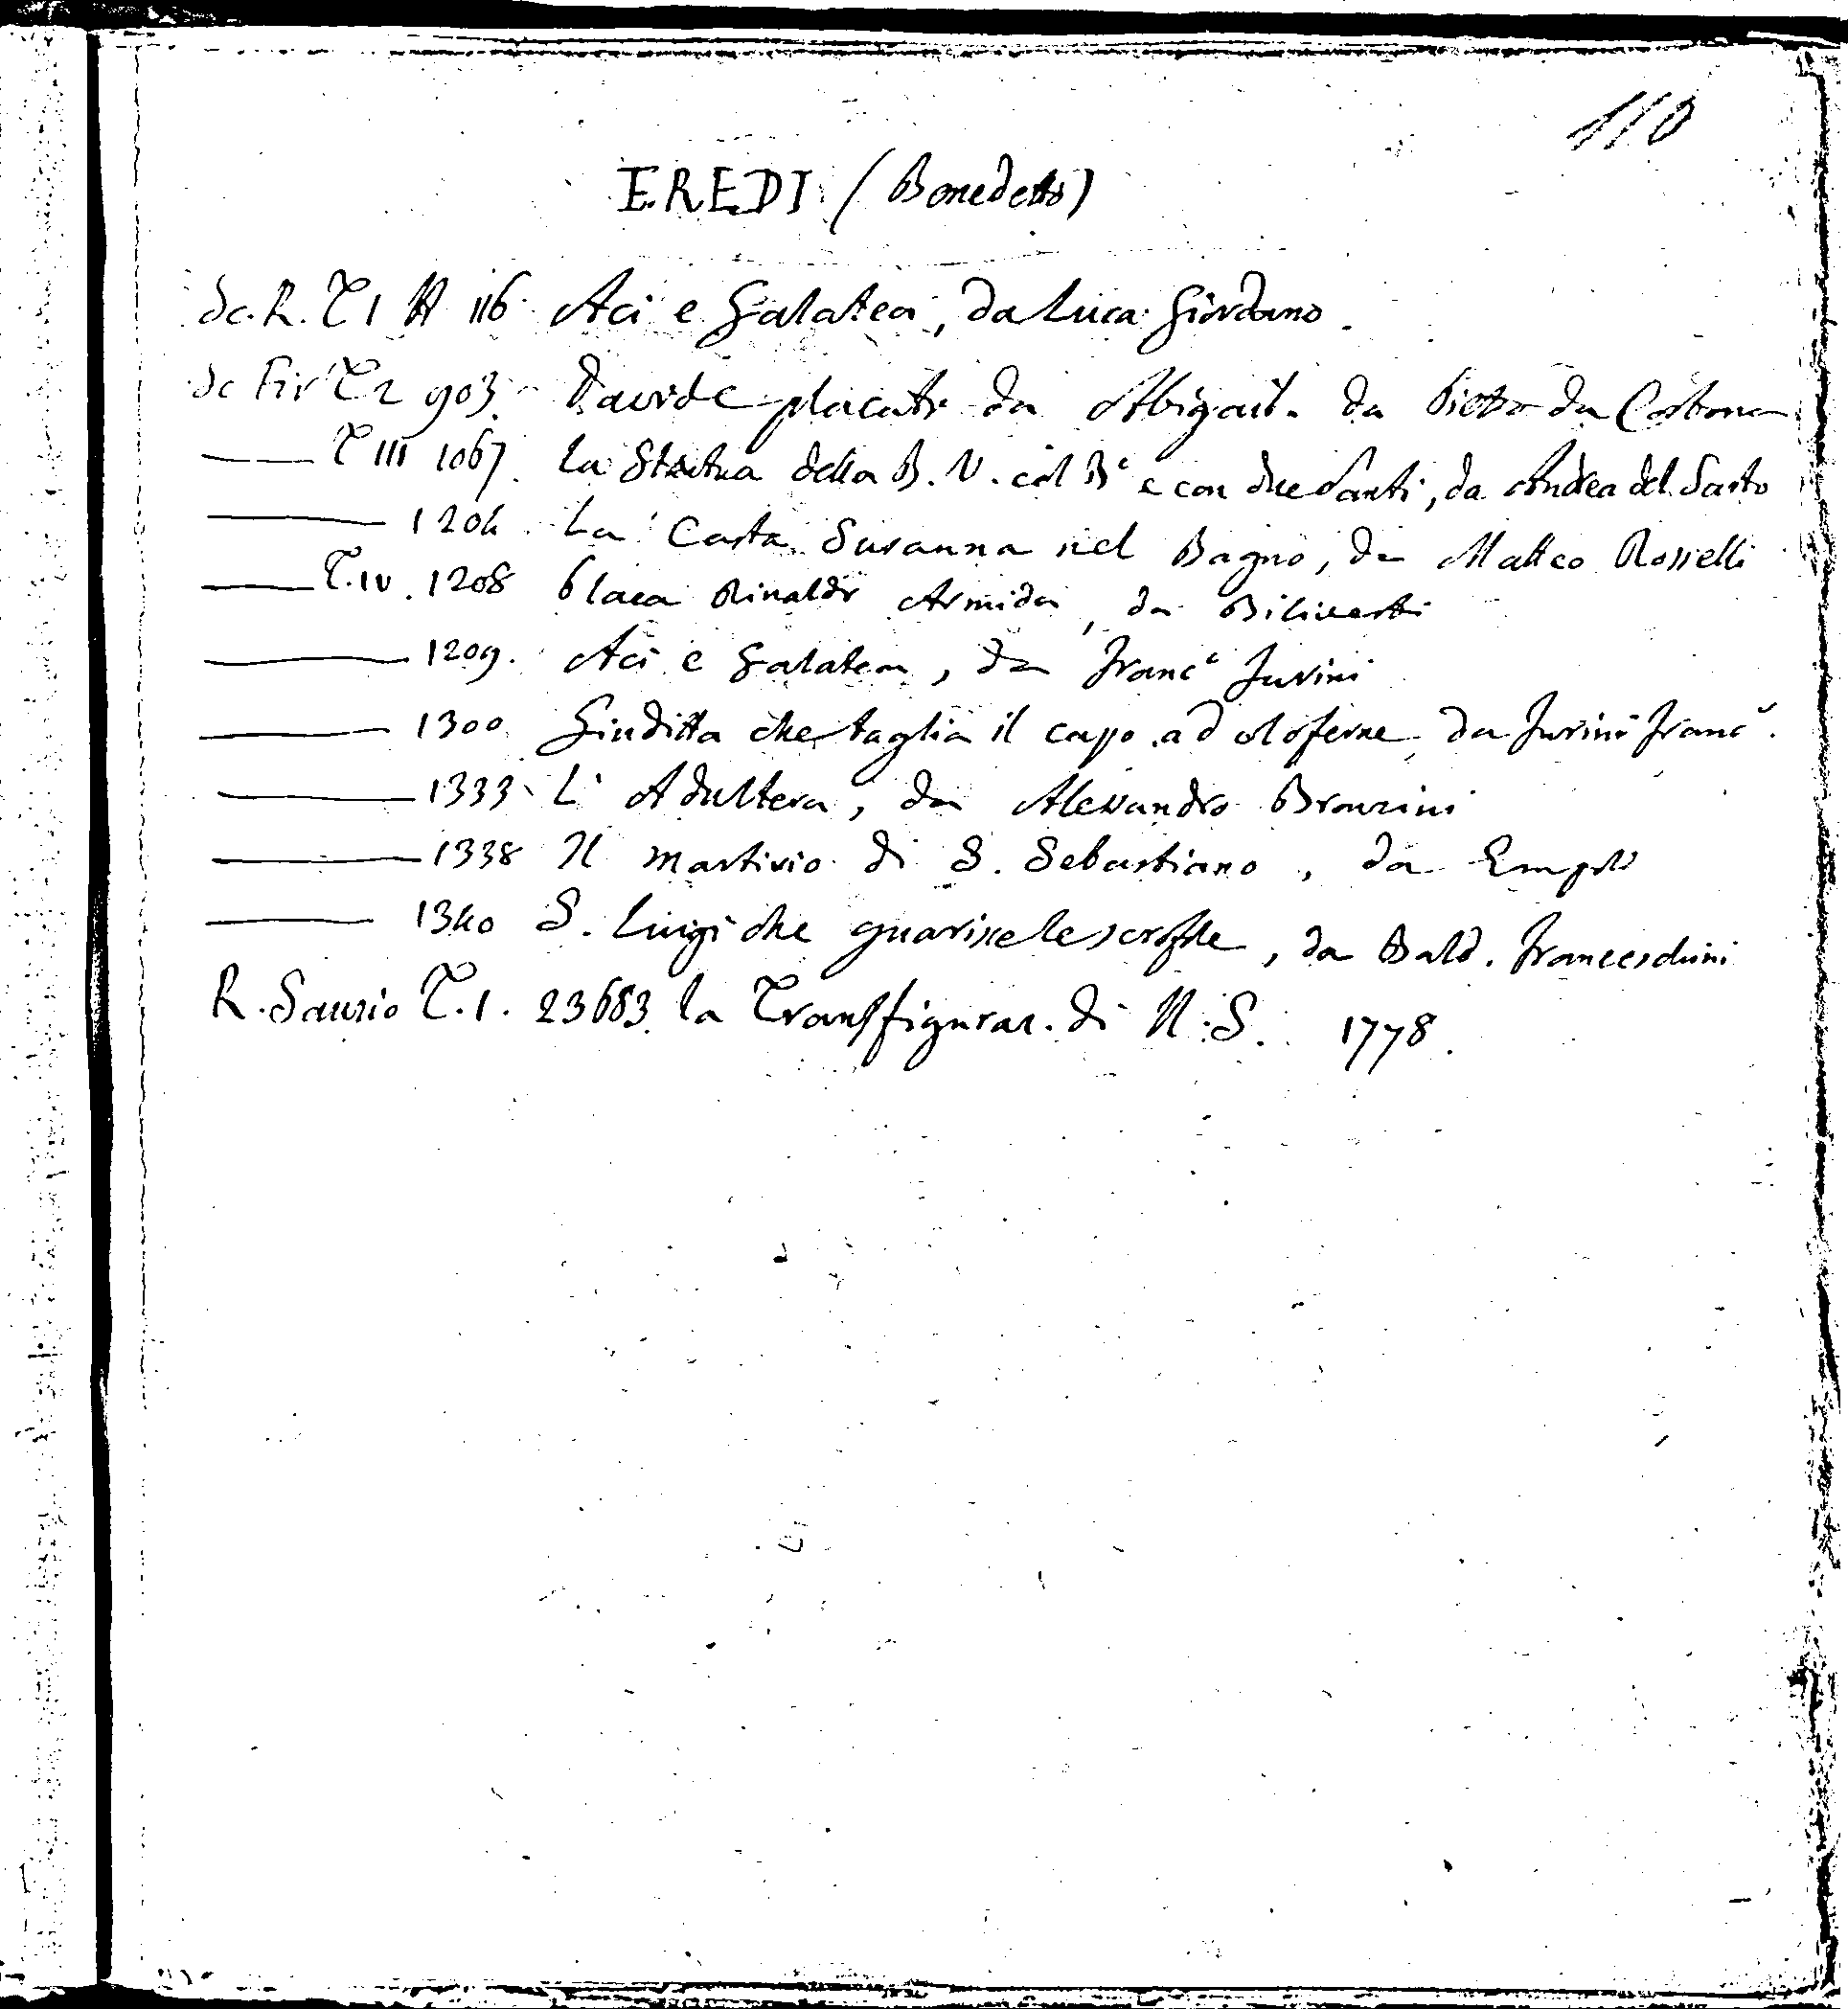 110
EREDI (Benedetto)
Sc. R. T I A 116 Aci e Galatea, da Luca Giordano.
Sc Fir T 2 903. Davide placato da Abigail. da Pietro da Cortona
—— T III 1067. La Statua della B. V. col Bº e con due Santi, da Andrea del Sarto
—— 1204. La Casta Susanna nel Bagno, da Matteo Rosselli
—— T. IV. 1208 Placa Rinaldo Armida, da Biliverti
—— 1209. Aci e Galatea, da Francº Furini
—— 1300 Giuditta che taglia il capo ad Oloferne, da Furini Francº.
—— 1333 L'Adultera, da Alessandro Bronzini
—— 1338 Il martirio di S. Sebastiano, da Empoli
—— 1340 S. Luigi che guarisce le scrofole, da Bald. Franceschini
R. Sanzio T. 1. 23683. la Transfiguraz. di N. S. 1778.